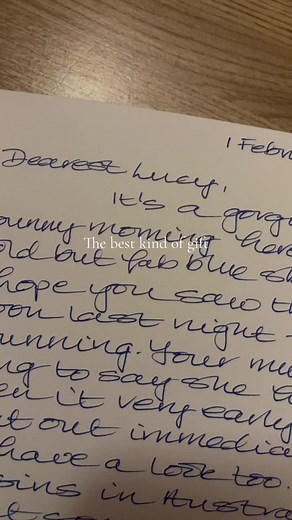 1 Febru
Dearest Lucy,
It's a gorg
sunny morning here
old but fab blue sk
hope you saw th
oon last night -
unning. Your mu
ng to say she
en it very early
t out immedia
have a look too.
sins in Austra
The best kind of gift